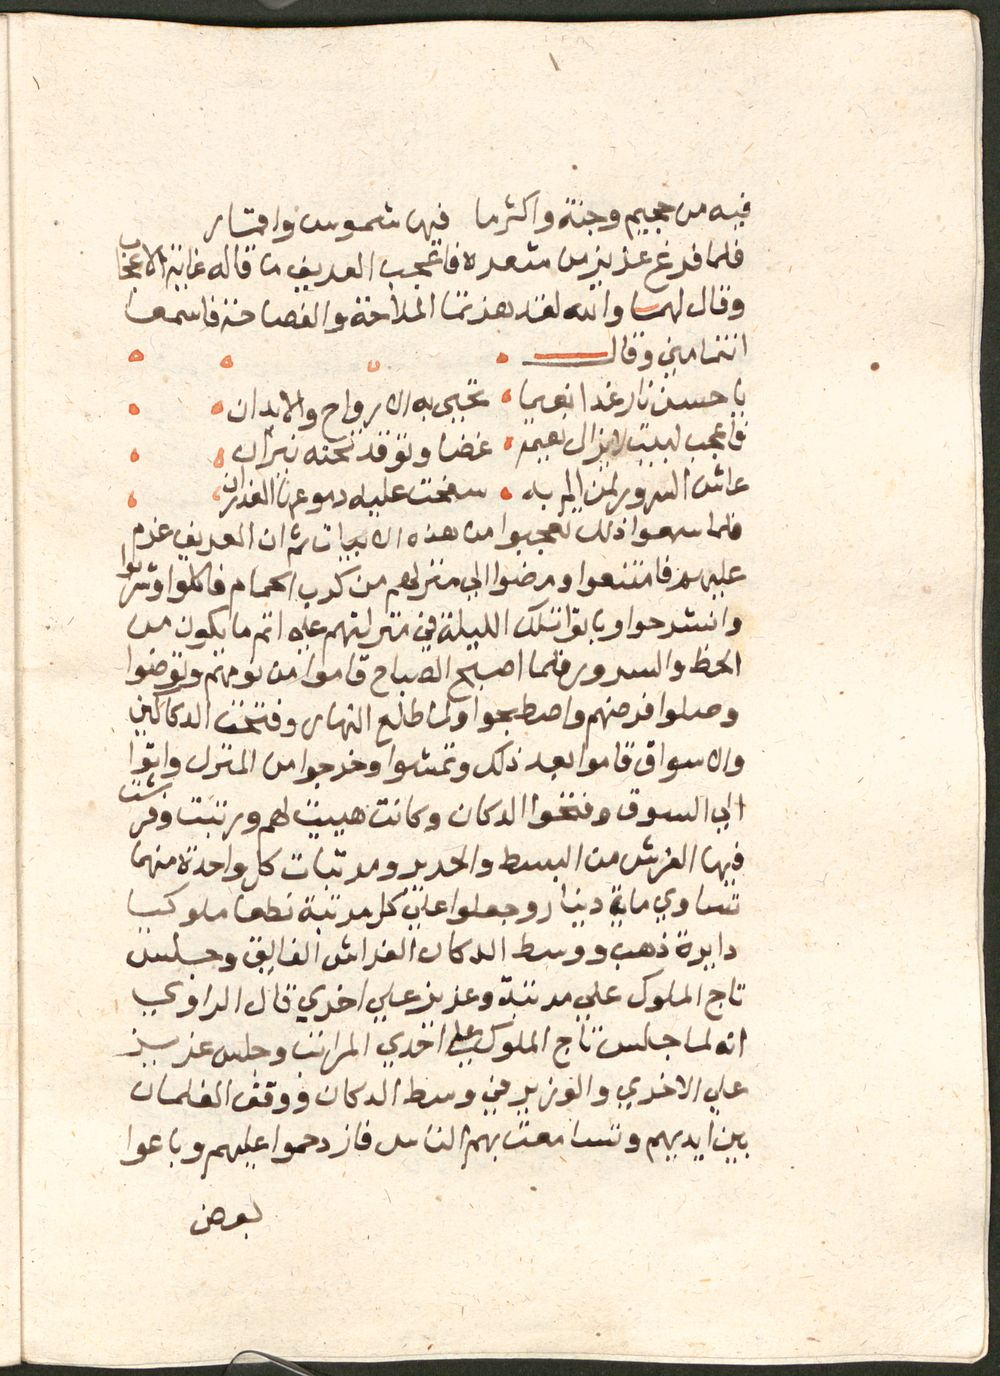 فيه من جحيم وجنة واكثر ما فيها شموس واقمار
فلما فرغ عزيز من شعره فاعجب العريف ما قاله غاية الاعجاب
وقال لهما والله لقد هذتما الملاحة والفصاحة فاسمعا
انتما مني وقال
يا حسن نار غدا نعيما تحيي به الارواح والابدان
فاعجب لبيت لا يزال نعيمه غضا وتوقد تحته نيران
عاش السرور لمن الم به سفحت عليه دموعها الغدران
فلما سمعوا ذلك تعجبوا من هذه الابيات ثم ان العريف عزم
عليهم فامتنعوا ومضوا الي منزلهم من كرب الحمام فاكلوا وشربوا
وانشرحوا وباتوا تلك الليلة في منزلتهم علي اتم ما يكون من
الحظ والسرور فلما اصبح الصباح قاموا من نومهم وتوضوا
وصلوا فرضهم واصطبحوا ولما طالع النهار وفتحت الدكاكين
والاسواق قاموا بعد ذلك وتمشوا وخرجوا من المنزل واتوا
الي السوق وفتحوا الدكان وكانت هييت لهم ورتبت وفرشت
فيها الفرش من البسط والحرير ومرتبات كل واحدة منهما
تساوي ماية دينار وجعلوا علي كل مرتبة نطعا ملوكيا
دايرة ذهب ووسط الدكان الفراش الفايق وجلس
تاج الملوك علي مرتبة وعزيز علي اخري قال الراوي
انه لما جلس تاج الملوك علي احدي المراتب وجلس عزيز
علي الاخري والوزير في وسط الدكان ووقف الغلمان
بين ايديهم وتسامعت بهم الناس فازدحموا عليهم وباعوا
بعض